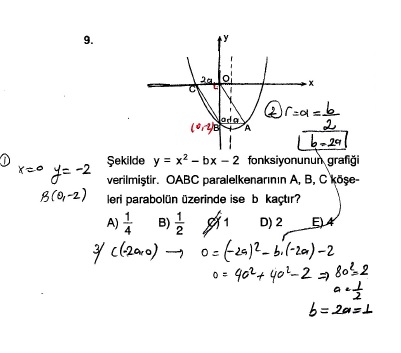 9.
y
2a
O
C
L
x
a
a
(0,-2)
B
A
② r=a=b/2
b=2a
① x=0 y=-2
B(0,-2)
Şekilde y = x² – bx – 2 fonksiyonunun grafiği
verilmiştir. OABC paralelkenarının A, B, C köşe-
leri parabolün üzerinde ise b kaçtır?
A) 1/4 B) 1/2 C) 1 D) 2 E) 4
3/ C(-2a,0) → 0=(-2a)²-b.(-2a)-2
0=4a²+4a²-2 ⇒ 8a²=2
a=1/2
b=2a=1